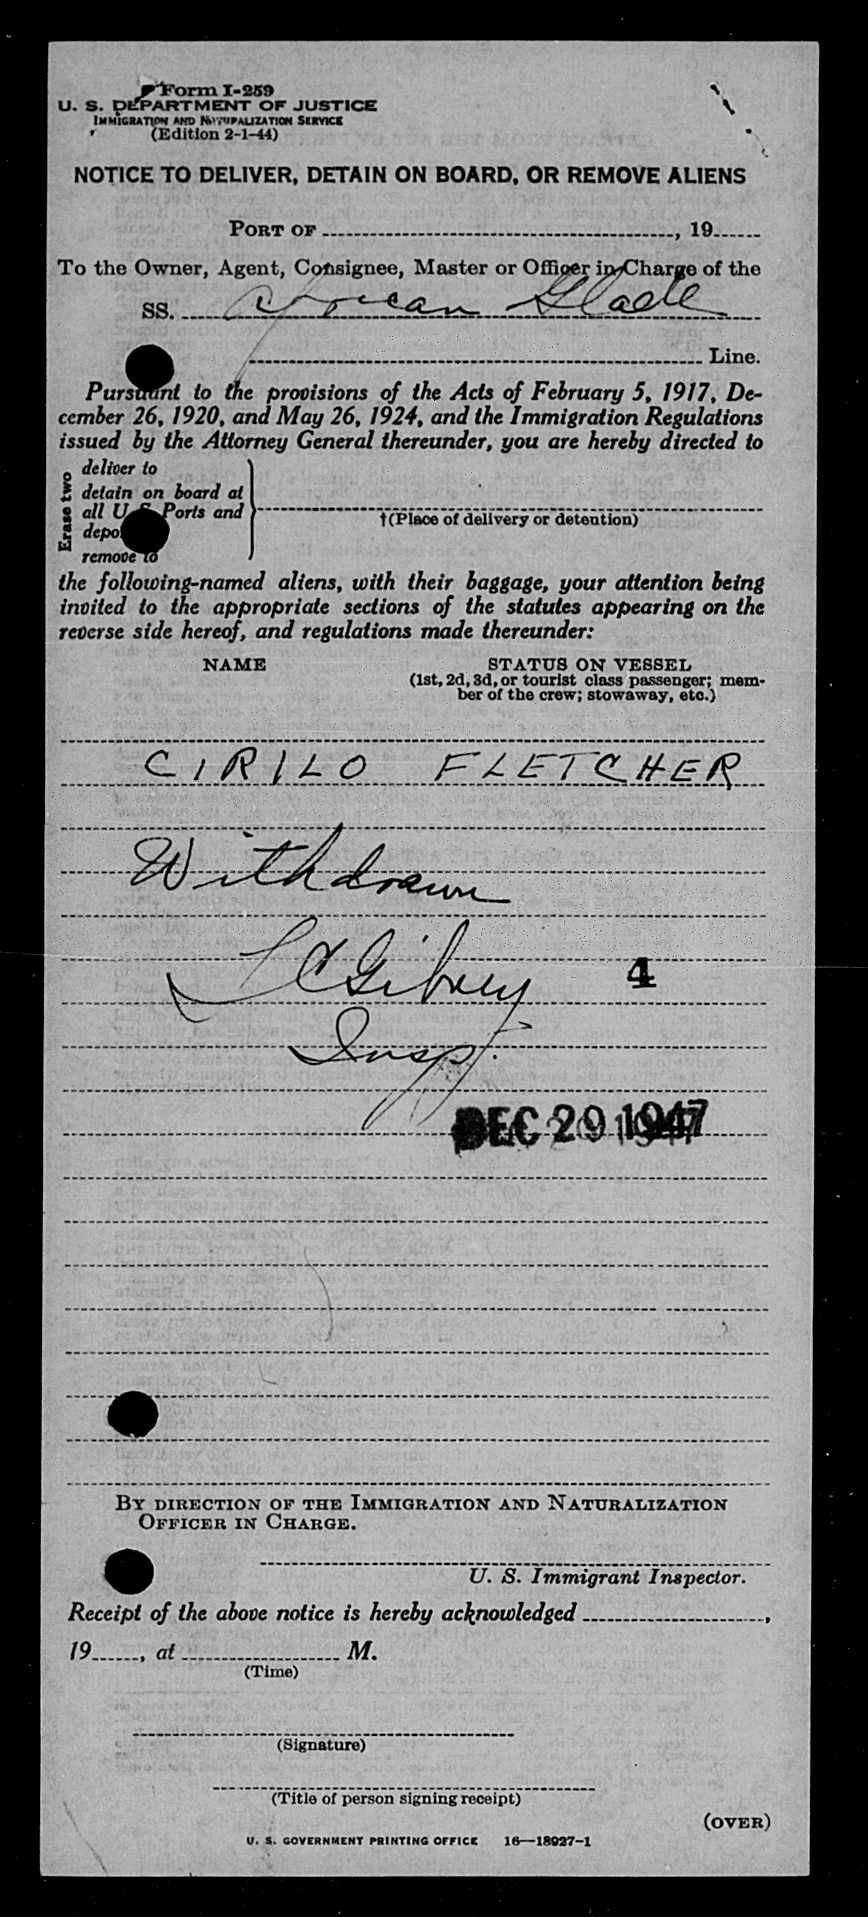 Form I-259
U. S. DEPARTMENT OF JUSTICE
IMMIGRATION AND NATURALIZATION SERVICE
(Edition 2-1-44)
NOTICE TO DELIVER, DETAIN ON BOARD, OR REMOVE ALIENS
PORT OF , 19
To the Owner, Agent, Consignee, Master or Officer in Charge of the
SS. African Glade
Line.
Pursuant to the provisions of the Acts of February 5, 1917, De-
cember 26, 1920, and May 26, 1924, and the Immigration Regulations
issued by the Attorney General thereunder, you are hereby directed to
Erase two
deliver to
detain on board at
all U. S. Ports and
remove to
†(Place of delivery or detention)
the following-named aliens, with their baggage, your attention being
invited to the appropriate sections of the statutes appearing on the
reverse side hereof, and regulations made thereunder:
NAME STATUS ON VESSEL
(1st, 2d, 3d, or tourist class passenger; mem-
ber of the crew; stowaway, etc.)
CIRILO FLETCHER
Withdrawn
4
Insp.
DEC 29 1947
BY DIRECTION OF THE IMMIGRATION AND NATURALIZATION
OFFICER IN CHARGE.
U. S. Immigrant Inspector.
Receipt of the above notice is hereby acknowledged ,
19 , at M.
(Time)
(Signature)
(Title of person signing receipt)
(OVER)
U. S. GOVERNMENT PRINTING OFFICE 16—18927-1